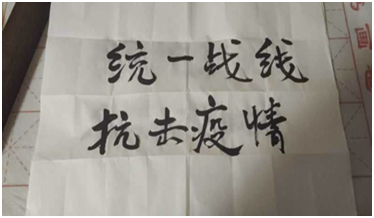 统一战线
抗击疫情